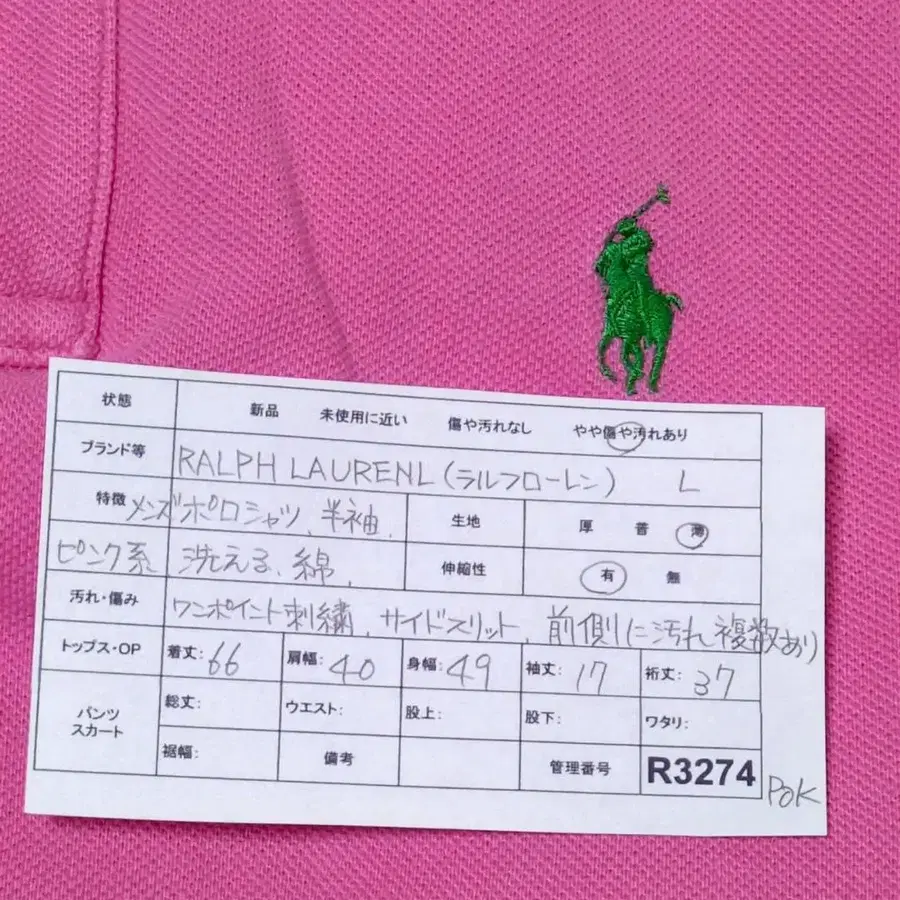 状態 新品 未使用に近い 傷や汚れなし やや傷や汚れあり
ブランド等 RALPH LAURENL (ラルフローレン) L
特徴 メンズポロシャツ、半袖、 生地 厚 普 薄
ピンク系 洗える、綿、 伸縮性 有 無
汚れ・傷み ワンポイント刺繍、サイドスリット、前側に汚れ複数あり
トップス・OP 着丈: 66 肩幅: 40 身幅: 49 袖丈: 17 裄丈: 37
パンツ スカート 総丈: ウエスト: 股上: 股下: ワタリ:
裾幅: 備考 管理番号 R3274 POK